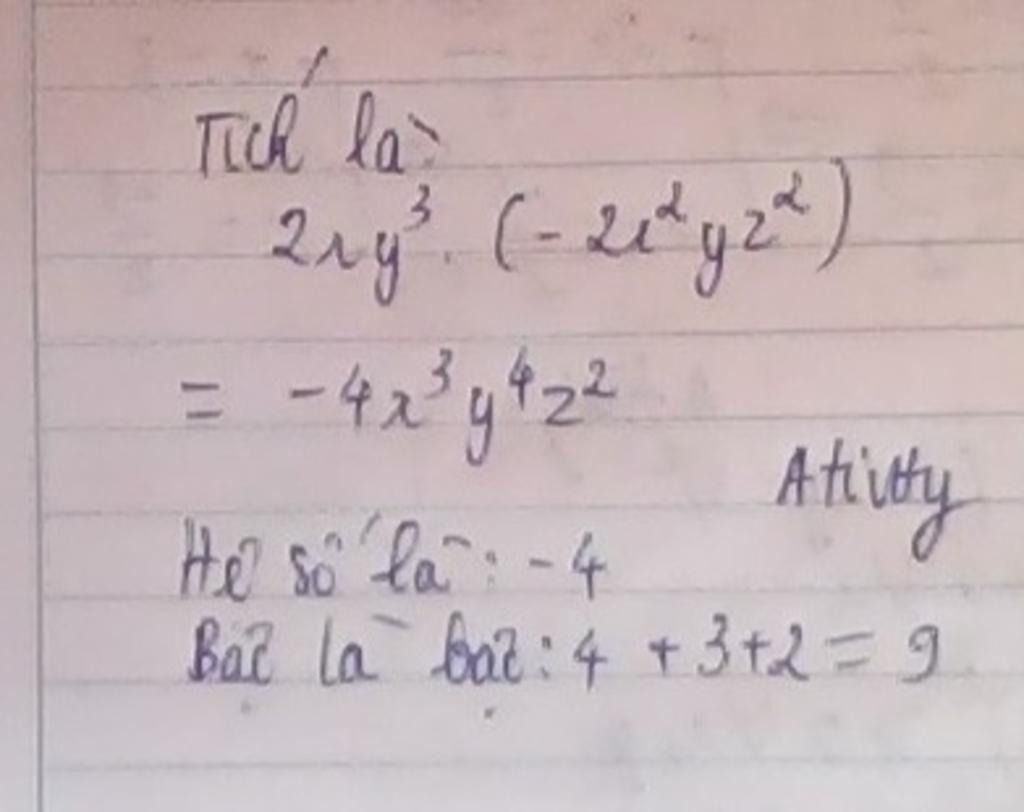 Tích là:
2xy³ . (-2x²yz²)
= -4x³y⁴z²
Ativity
Hệ số là: -4
Bậc là bậc: 4 + 3 + 2 = 9